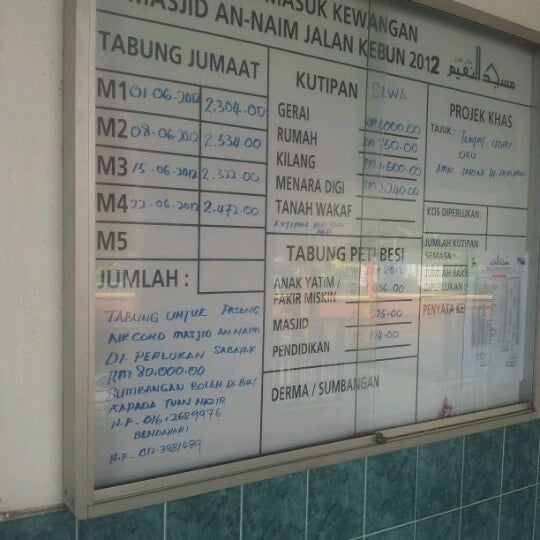 MASUK KEWANGAN
MASJID AN-NAIM JALAN KEBUN 2012
مسجد النعيم
TABUNG JUMAAT
M1 01-06-2012 2,304.00
M2 08-06-2012 2,534.00
M3 15-06-2012 2,322.00
M4 22-06-2012 2,472.00
M5
JUMLAH :
TABUNG UNTUK PASANG
AIRCOND MASJID AN-NAIM
DI PERLUKAN SABANYAK
RM 80,000.00
SUMBANGAN BOLEH DI BUAT
KAPADA TUAN NAZIR
H.P. 016.2689976
BENDAHARI
H.P. 012.3881489
KUTIPAN SEWA
GERAI RM 1,000.00
RUMAH RM 750.00
KILANG RM 1,600.00
MENARA DIGI RM 2,240.00
TANAH WAKAF
KUTIPAN
TABUNG PETI BESI
2012
ANAK YATIM /
FAKIR MISKIN 136.00
MASJID
PENDIDIKAN 134.00
DERMA / SUMBANGAN
PROJEK KHAS
TAJUK : TEMPAT WUDU
OKU
AMAL JARIAH DI PERLUKAN
KOS DIPERLUKAN :
JUMLAH KUTIPAN
SEMASA :
JUMLAH BAKI
DIPERLUKAN :
PENYATA KE